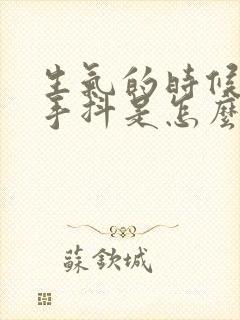 生氣的時候
手抖是怎麼
蘇欽城